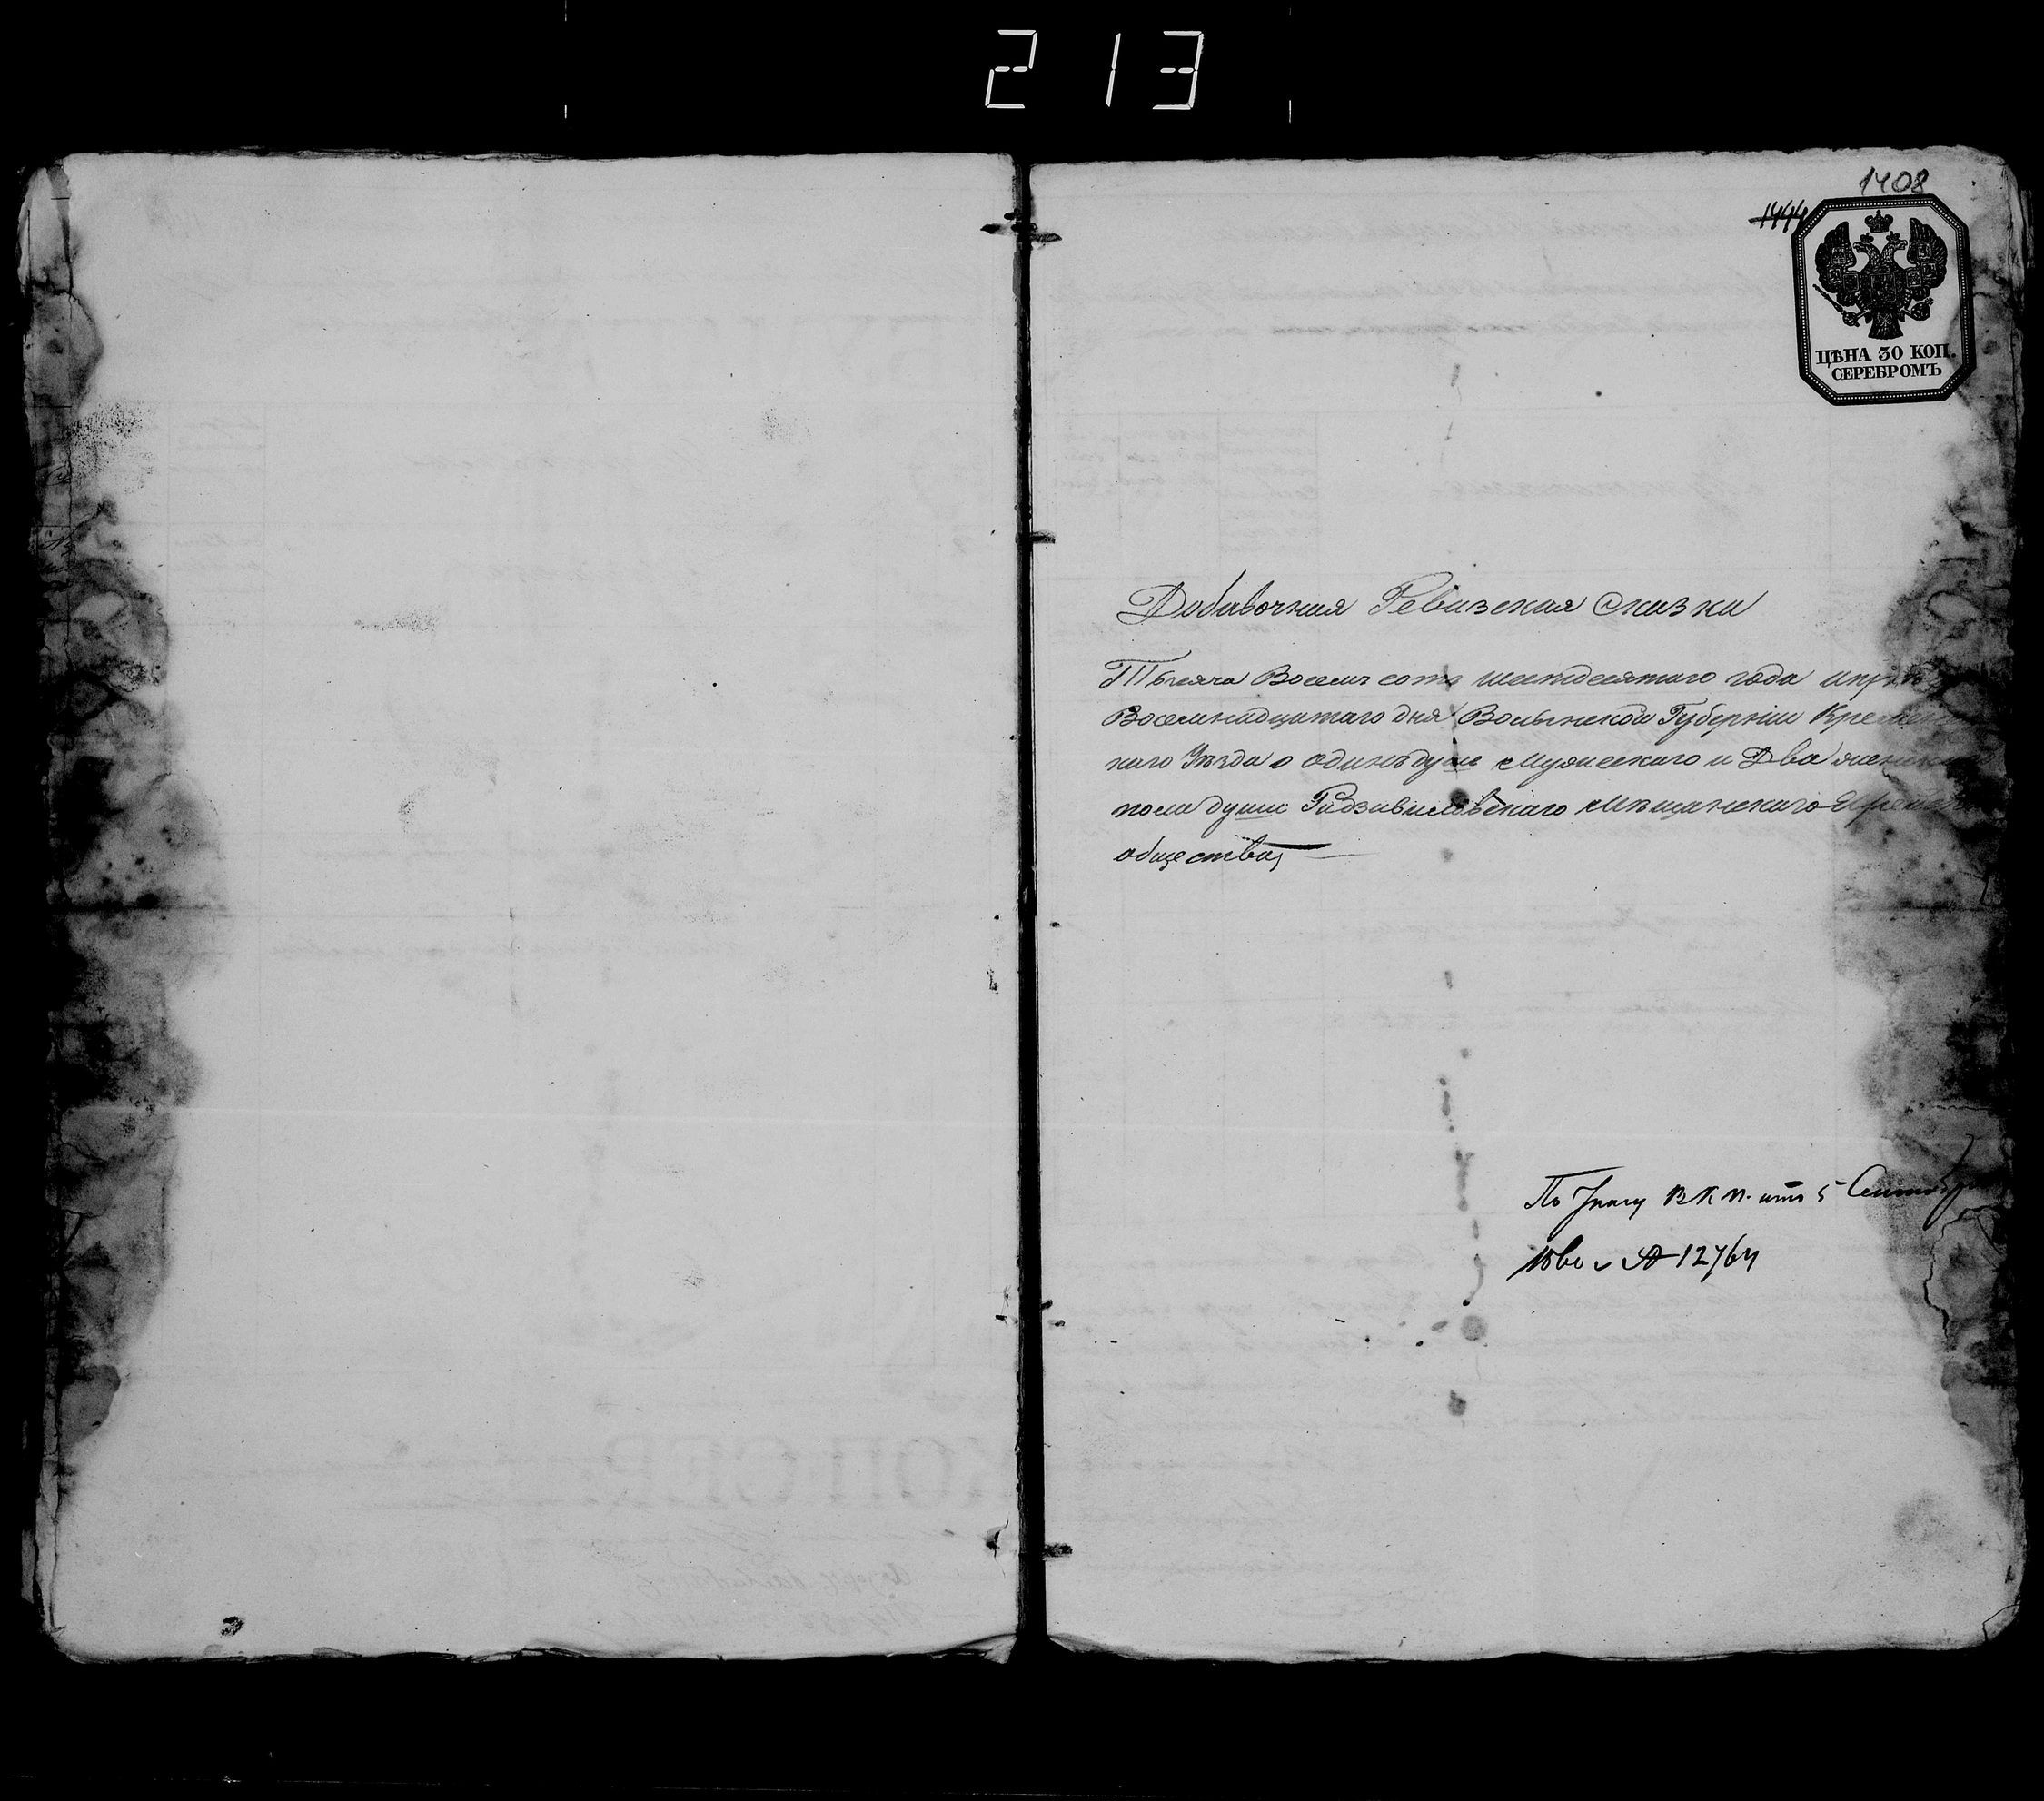 213
1408
1444
ЦѢНА 30 КОП.
СЕРЕБРОМЪ
Добавочная Ревизская Сказка
Тысяча Восемъ сотъ шестдесятаго года Апрѣля
Восемнадцатаго дня Волынской Губерніи Кремене
каго Уѣзда о одинъ душе Мужескаго и Два женскаго
пола души Радзивиловскаго Мѣщанскаго Еврейска
общества,
По Указу В К П. отъ 5 Сентября
№ 12764